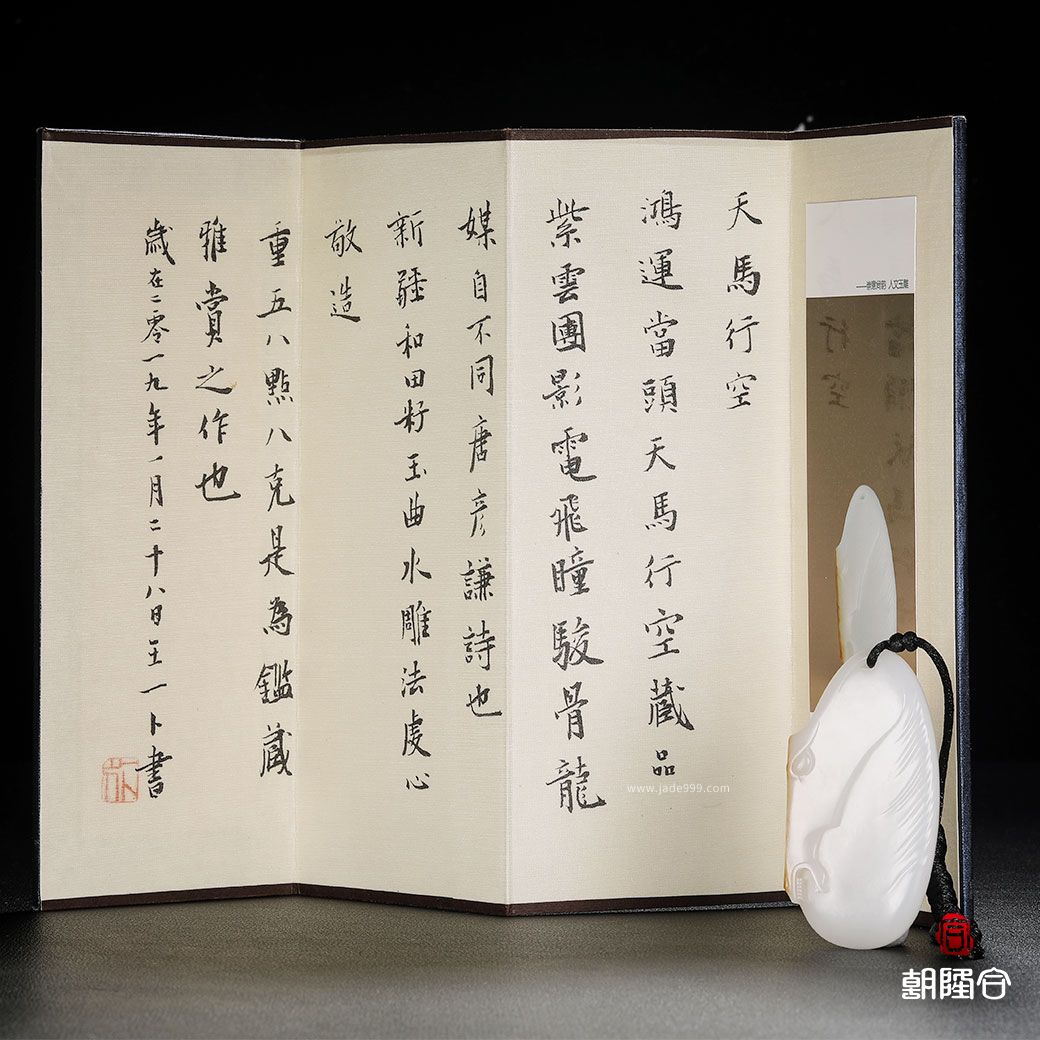 天馬行空
鴻運當頭天馬行空藏品
紫雲團影電飛瞳駿骨龍
媒自不同唐彦謙詩也
新疆和田籽玉曲水雕法虔心
敬造
重五八點八克是為鑑藏
雅賞之作也
歲在二零一九年一月二十八日王一卜書
www.jade999.com
朝隆合